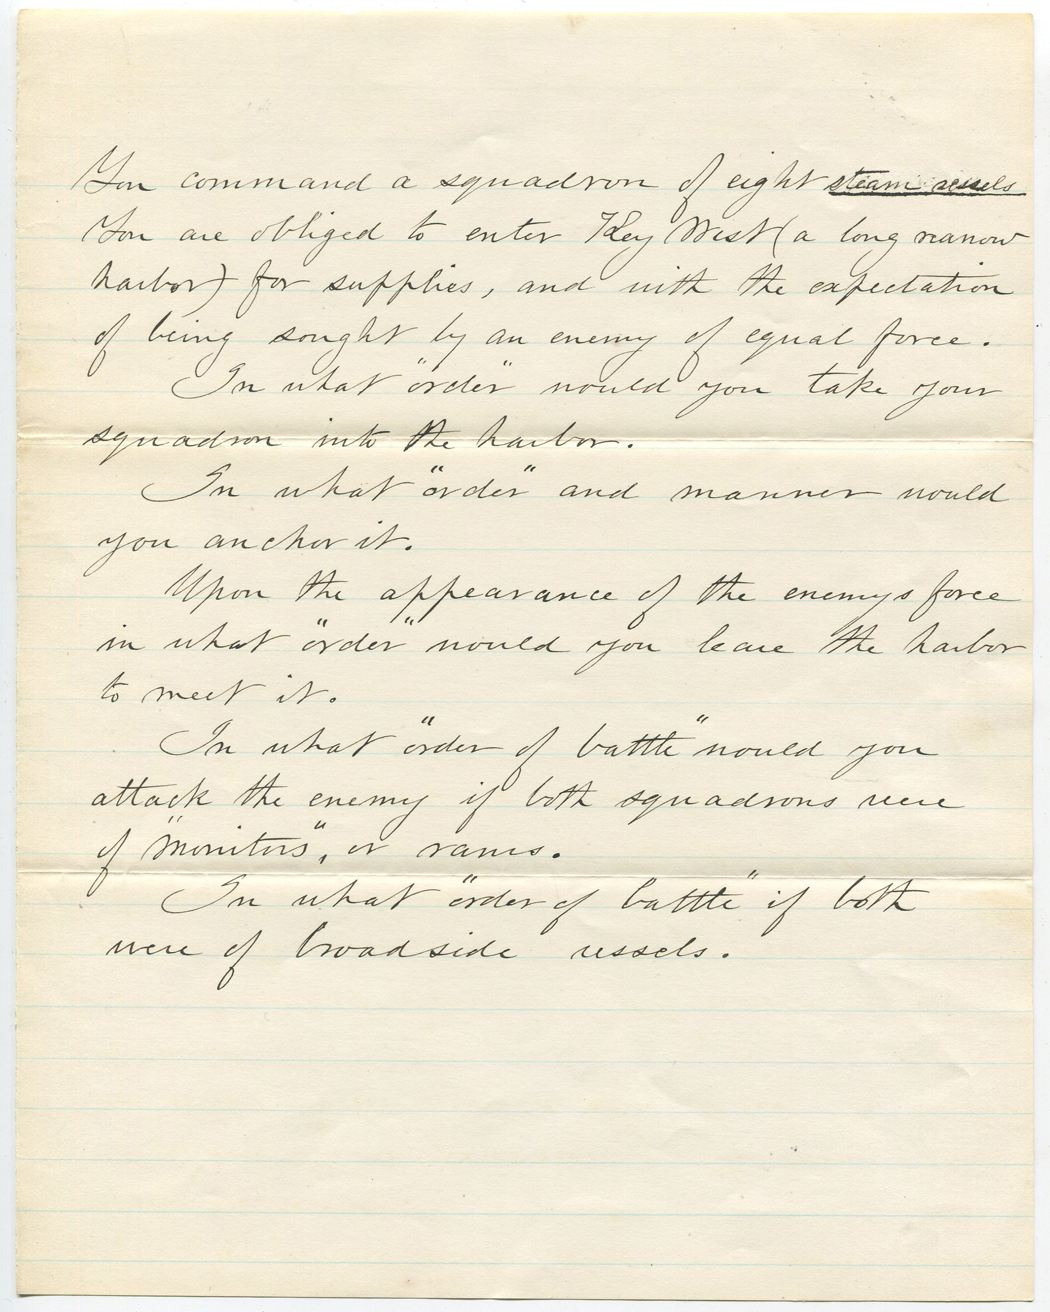 You command a squadron of eight steam vessels
You are obliged to enter Key West (a long narrow
harbor) for supplies, and with the expectation
of being sought by an enemy of equal force.
In what "order" would you take your
squadron into the harbor.
In what "order" and manner would
you anchor it.
Upon the appearance of the enemys force
in what "order" would you leave the harbor
to meet it.
In what "order of battle" would you
attack the enemy if both squadrons were
of "monitors", or rams.
In what "order of battle" if both
were of broadside vessels.